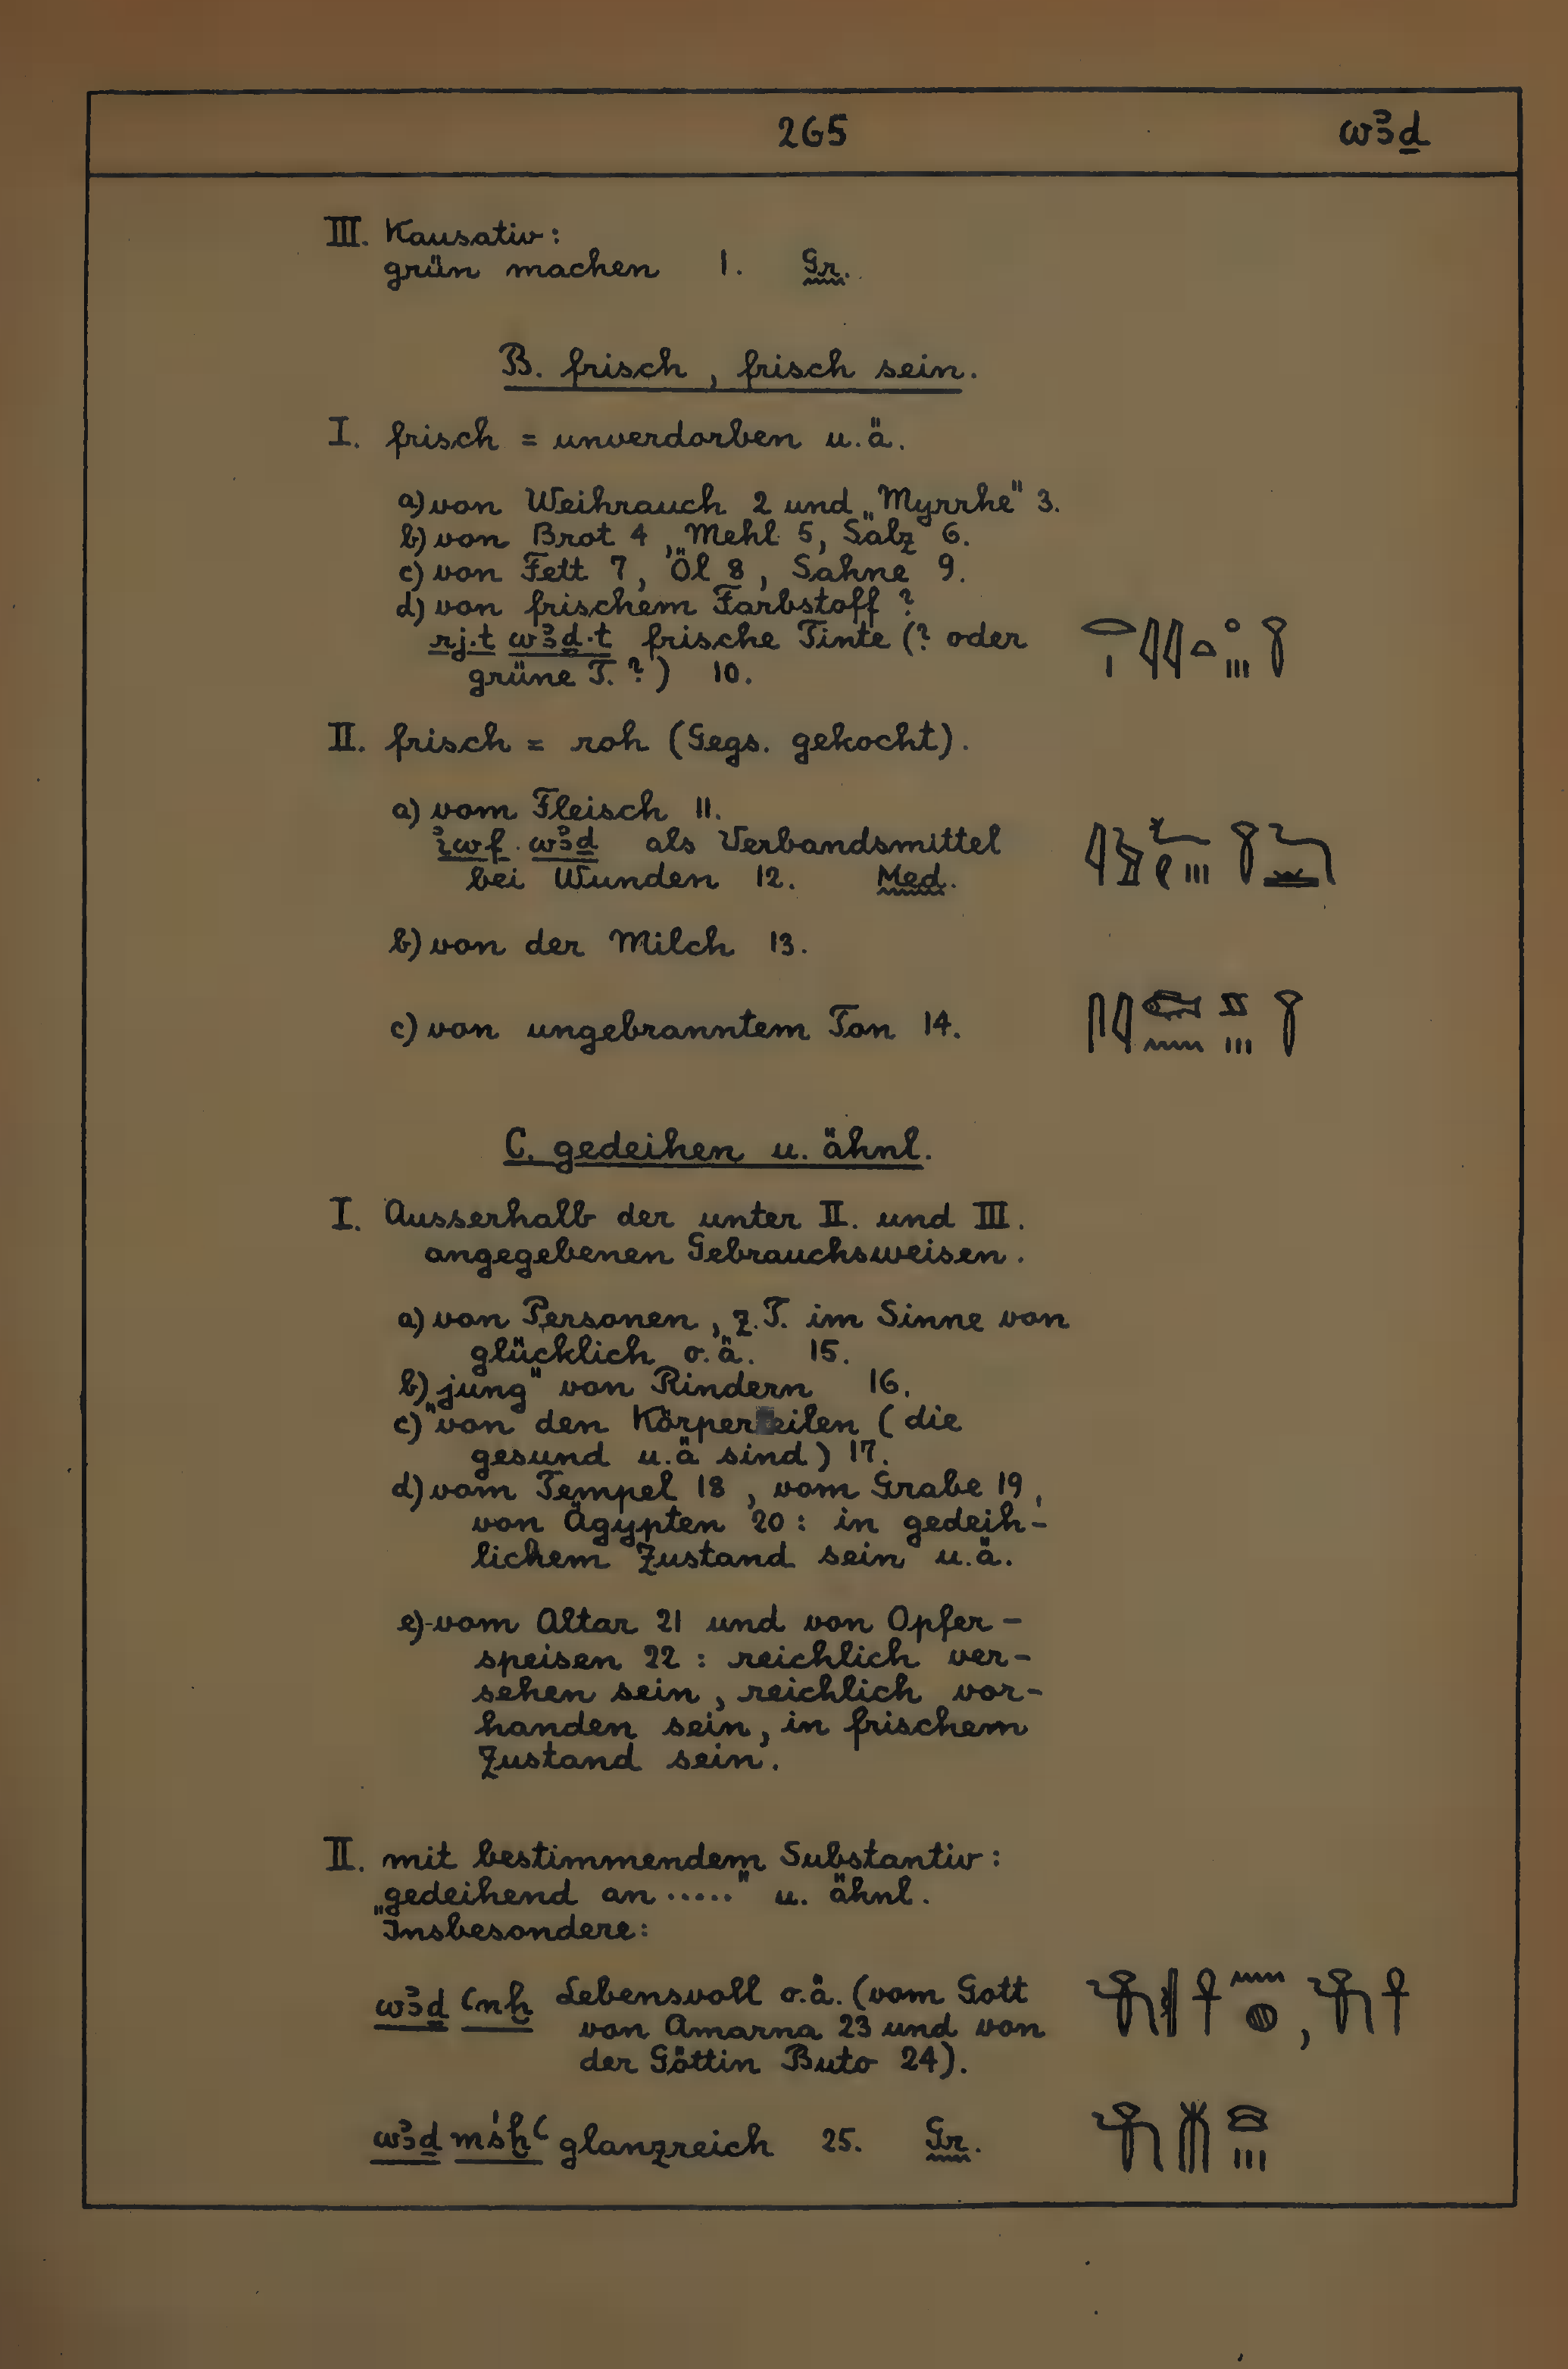 265 wꜣḏ
III. Kausativ:
grün machen 1. Gr.
B. frisch, frisch sein.
I. frisch = unverdorben u.ä.
a) von Weihrauch 2 und „Myrrhe" 3.
b) von Brot 4, Mehl 5, Salz 6.
c) von Fett 7, Öl 8, Sahne 9.
d) von frischem Farbstoff?
rj.t wꜣḏ.t frische Tinte (? oder
grüne T.?) 10.
II. frisch = roh (Gegs. gekocht).
a) vom Fleisch 11.
iwf wꜣḏ als Verbandsmittel
bei Wunden 12. Med.
b) von der Milch 13.
c) von ungebranntem Ton 14.
C. gedeihen u. ähnl.
I. Ausserhalb der unter II. und III.
angegebenen Gebrauchsweisen.
a) von Personen, z.T. im Sinne von
glücklich o.ä. 15.
b) „jung" von Rindern 16.
c) von den Körperteilen (die
gesund u.ä sind) 17.
d) vom Tempel 18, vom Grabe 19,
von Ägypten 20: in gedeih-
lichem Zustand sein u.ä.
e) vom Altar 21 und von Opfer-
speisen 22: reichlich ver-
sehen sein, reichlich vor-
handen sein, in frischem
Zustand sein.
II. mit bestimmendem Substantiv:
„gedeihend an ....." u. ähnl.
Insbesondere:
wꜣḏ ꜥnḫ Lebensvoll o.ä. (vom Gott
von Amarna 23 und von
der Göttin Buto 24).
wꜣḏ mśḫꜥ glanzreich 25. Gr.